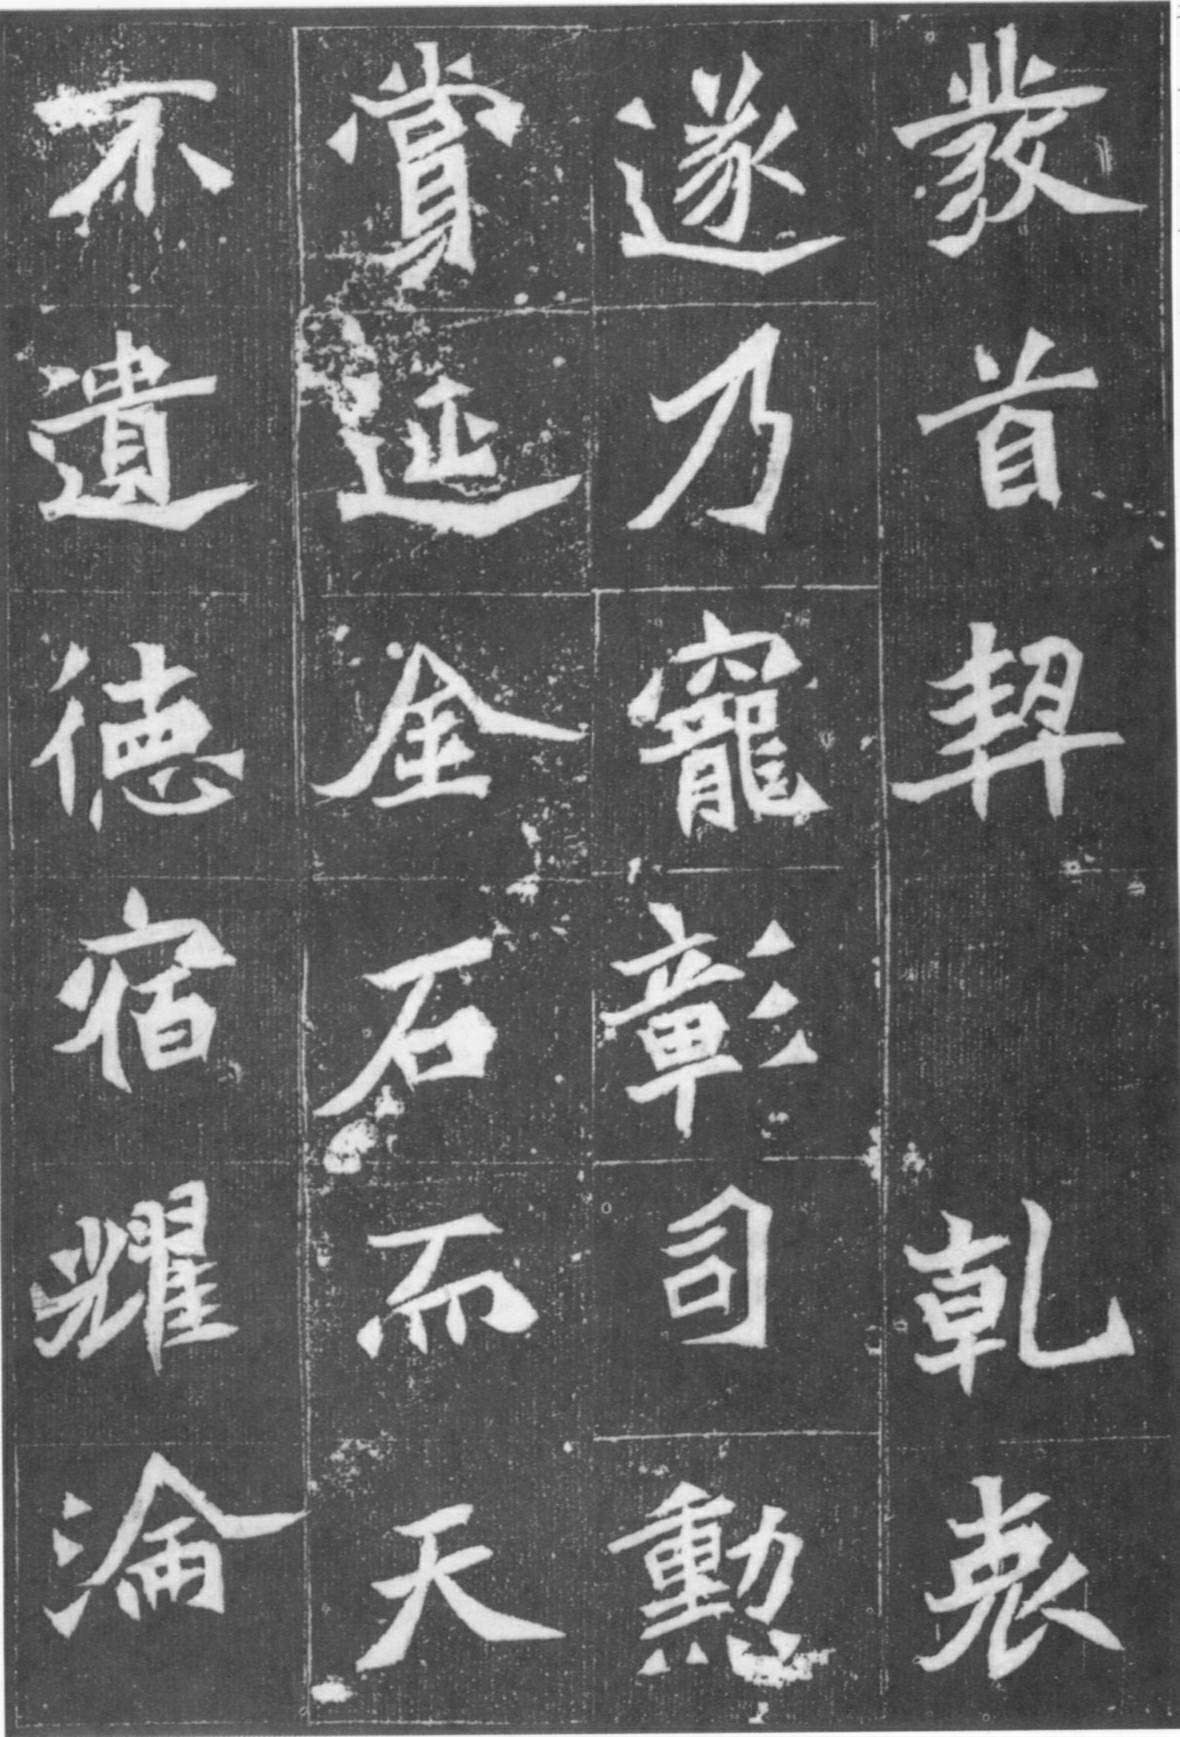 發首契　乾衷
遂乃寵彰司勳
賞延金石而天
不遺德宿耀淪